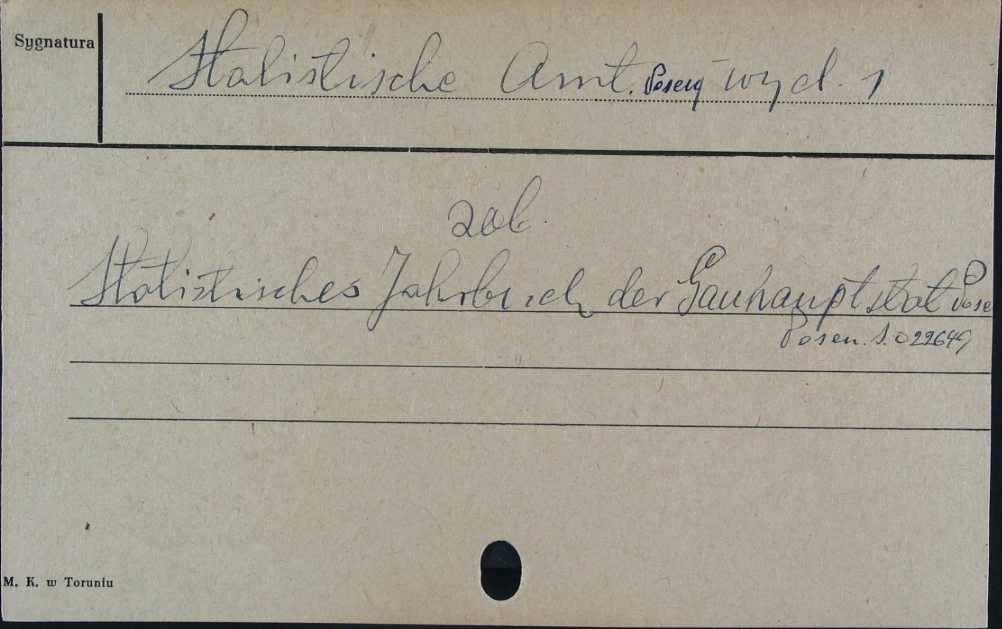 Sygnatura
Statistische Amt. Posen - wyd. 1
zob.
Statistisches Jahrbuch der Gauhauptstat Pose
Posen. S. 022649
M. K. w Toruniu